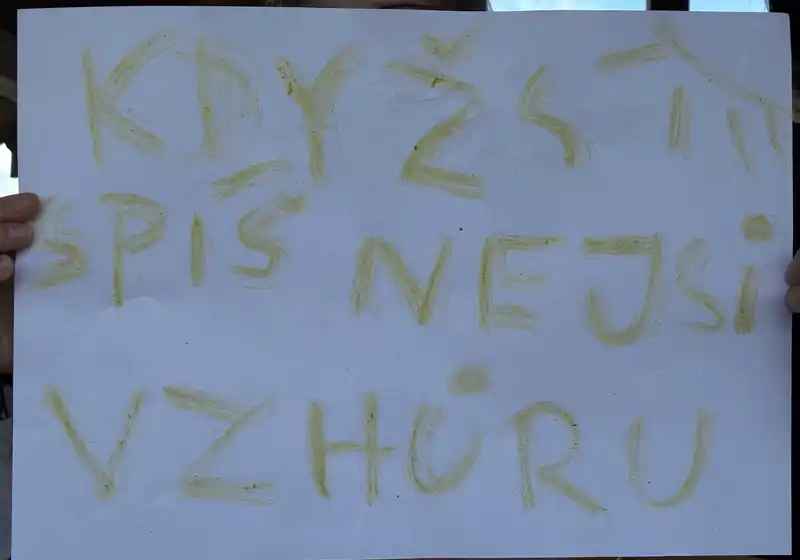 KDYŽ
SPÍŠ NEJSI
VZHŮRU